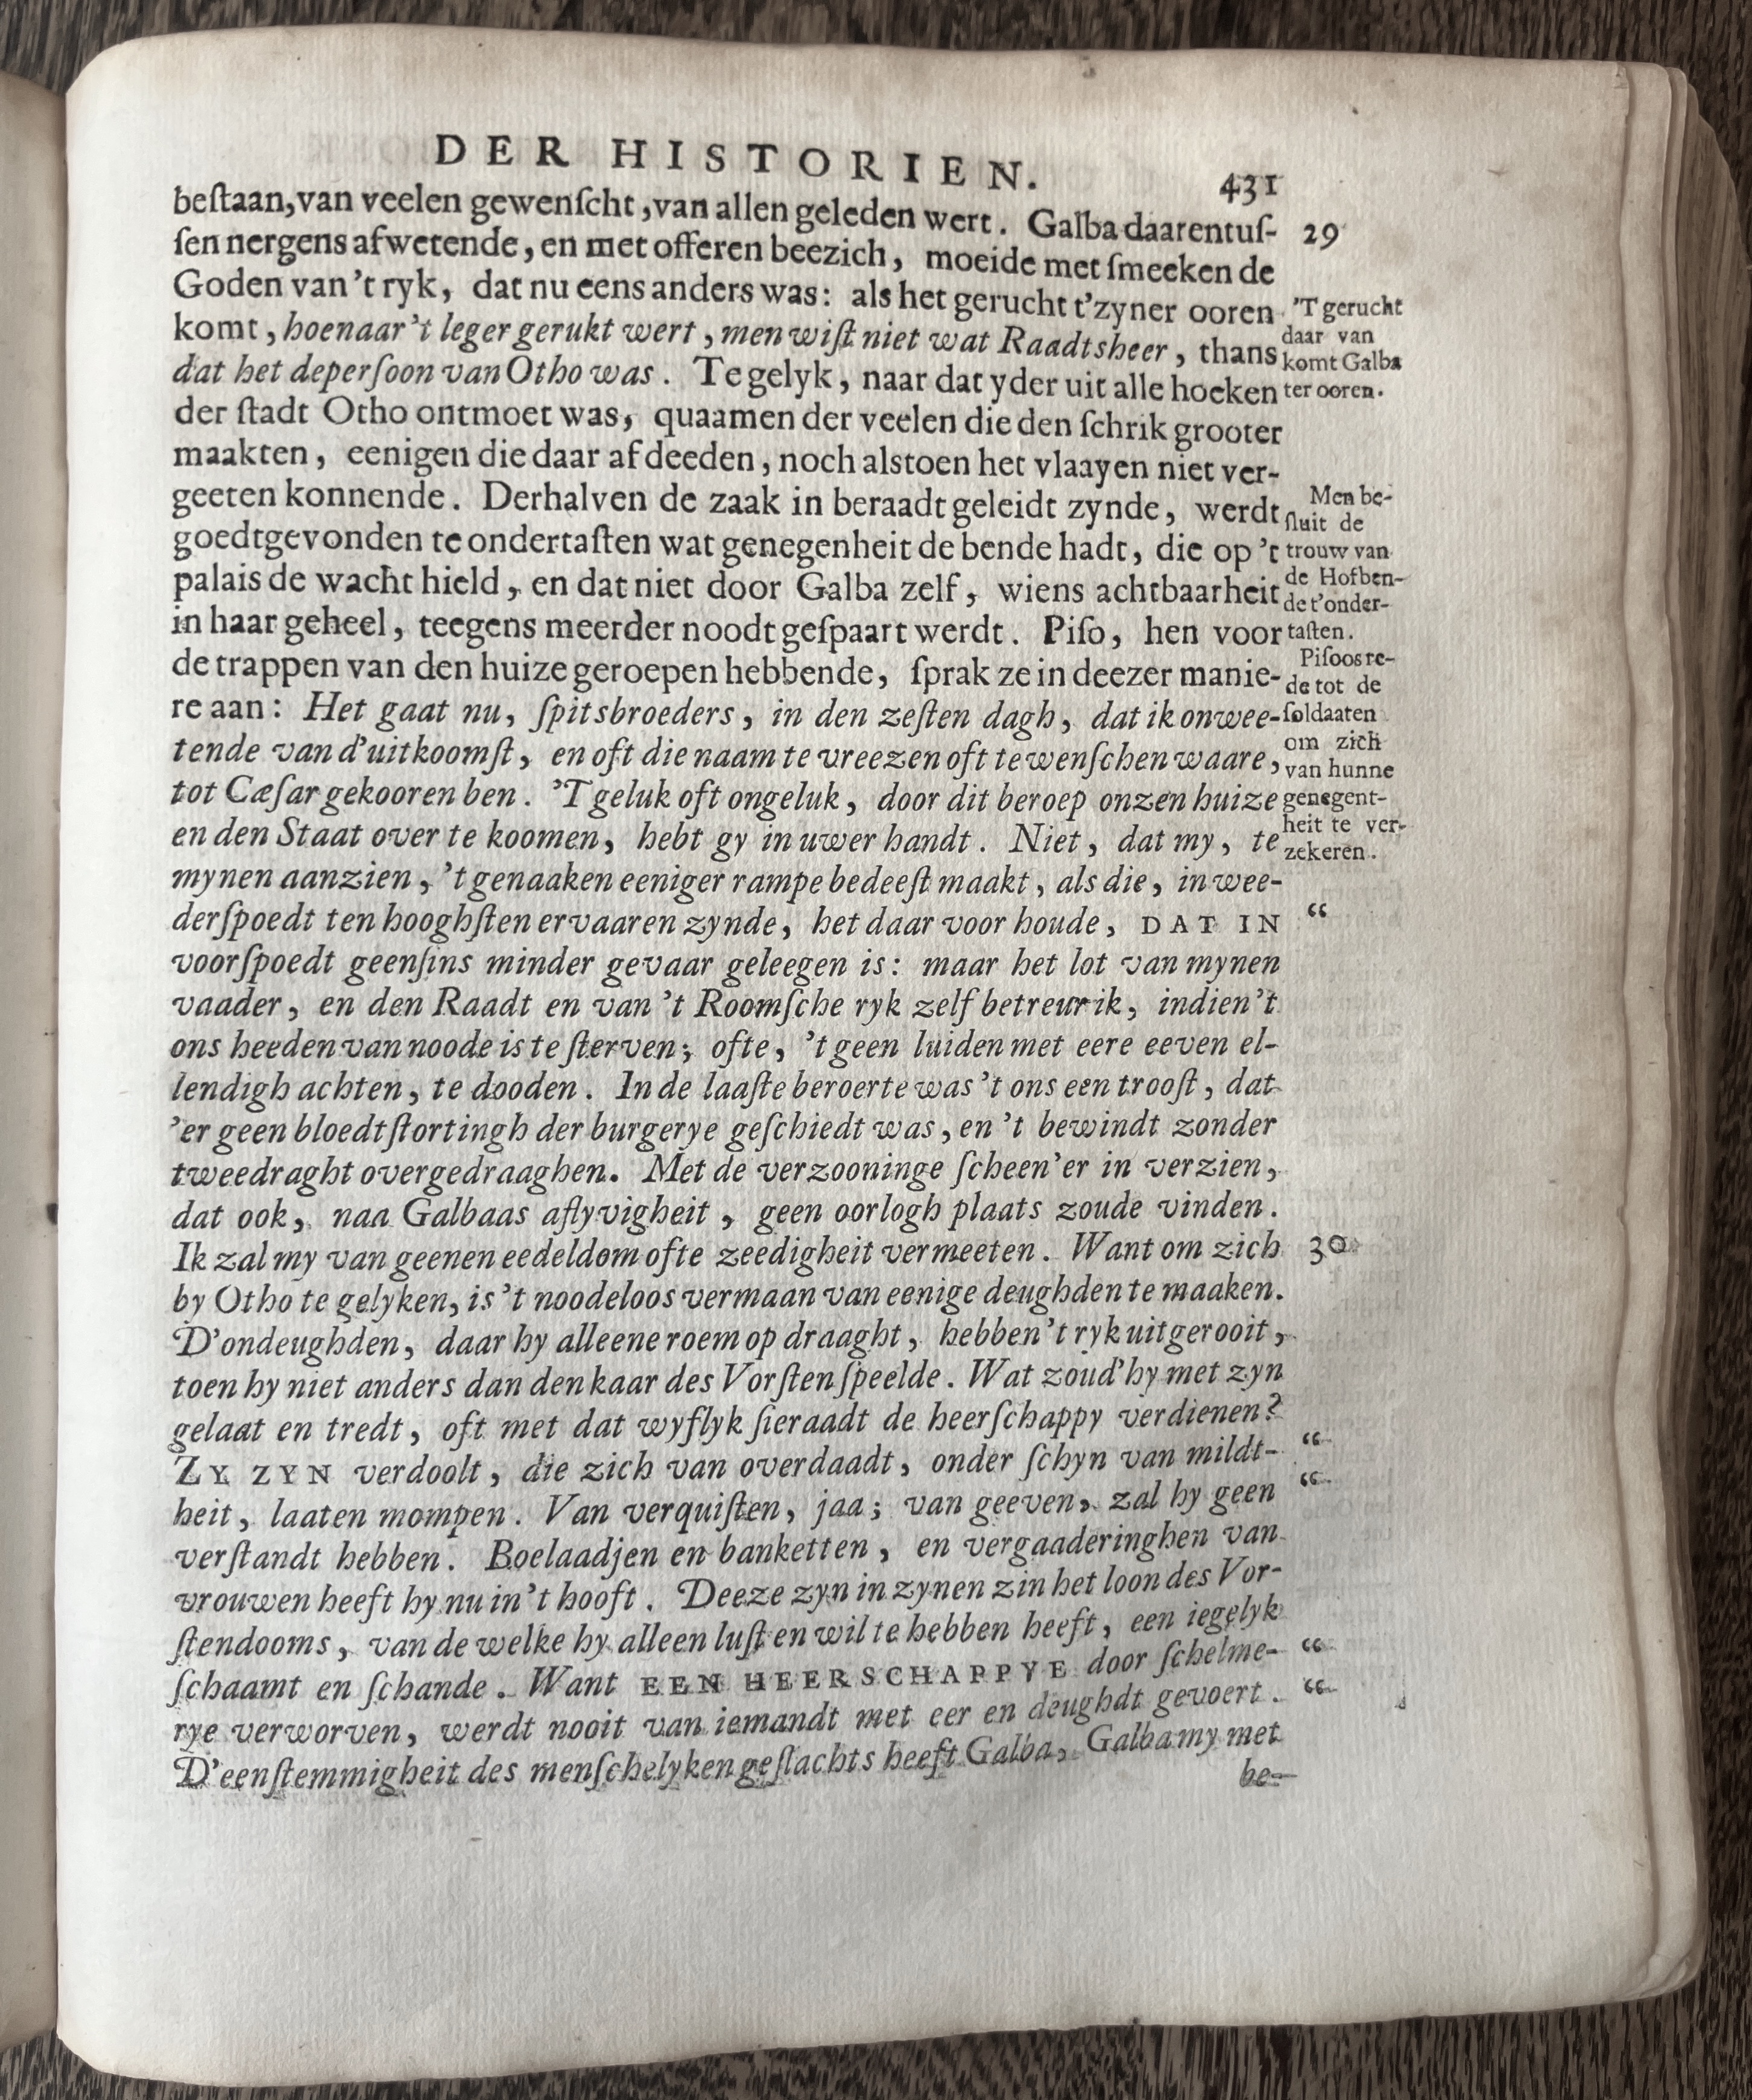 DER HISTORIEN.
431
beſtaan, van veelen gewenſcht, van allen geleden wert. Galba daarentuſ-
29
ſen nergens af wetende, en met offeren beezich, moeide met ſmeeken de
Goden van 't ryk, dat nu eens anders was: als het gerucht t'zyner ooren
komt, hoe naar 't leger gerukt wert, men wiſt niet wat Raadtsheer, thans
dat het de perſoon van Otho was. Te gelyk, naar dat yder uit alle hoeken
'T gerucht
daar van
komt Galba
ter ooren.
der ſtadt Otho ontmoet was, quaamen der veelen die den ſchrik grooter
maakten, eenigen die daar af deeden, noch alstoen het vlaayen niet ver-
geeten konnende. Derhalven de zaak in beraadt geleidt zynde, werdt
goedtgevonden te ondertaſten wat genegenheit de bende hadt, die op 't
palais de wacht hield, en dat niet door Galba zelf, wiens achtbaarheit
in haar geheel, teegens meerder noodt geſpaart werdt. Piſo, hen voor
Men be-
ſluit de
trouw van
de Hofben-
de t'onder-
taſten.
de trappen van den huize geroepen hebbende, ſprak ze in deezer manie-
re aan: Het gaat nu, ſpitsbroeders, in den zeſten dagh, dat ik onwee-
tende van d'uitkoomſt, en oft die naam te vreezen oft te wenſchen waare,
tot Cæſar gekooren ben. 'T geluk oft ongeluk, door dit beroep onzen huize
en den Staat over te koomen, hebt gy in uwer handt. Niet, dat my, te
Piſoos re-
de tot de
ſoldaaten
om zich
van hunne
genegent-
heit te ver-
zekeren.
mynen aanzien, 't genaaken eeniger rampe bedeeſt maakt, als die, in wee-
derſpoedt ten hooghſten ervaaren zynde, het daar voor houde, DAT IN “
voorſpoedt geenſins minder gevaar geleegen is: maar het lot van mynen
vaader, en den Raadt en van 't Roomſche ryk zelf betreur ik, indien 't
ons heeden van noode is te ſterven; ofte, 't geen luiden met eere eeven el-
lendigh achten, te dooden. In de laaſte beroerte was 't ons een trooſt, dat
'er geen bloedtſtortingh der burgerye geſchiedt was, en 't bewindt zonder
tweedraght overgedraaghen. Met de verzooninge ſcheen 'er in verzien,
dat ook, naa Galbaas aflyvigheit, geen oorlogh plaats zoude vinden.
Ik zal my van geenen eedeldom ofte zeedigheit vermeeten. Want om zich
30
by Otho te gelyken, is 't noodeloos vermaan van eenige deughden te maaken.
D'ondeughden, daar hy alleene roem op draaght, hebben 't ryk uitgerooit,
toen hy niet anders dan den kaar des Vorſten ſpeelde. Wat zoud' hy met zyn
gelaat en tredt, oft met dat wyflyk ſieraadt de heerſchappy verdienen?
ZY ZYN verdoolt, die zich van overdaadt, onder ſchyn van mildt- “
heit, laaten mompen. Van verquiſten, jaa; van geeven, zal hy geen “
verſtandt hebben. Boelaadjen en banketten, en vergaaderinghen van
vrouwen heeft hy nu in 't hooft. Deeze zyn in zynen zin het loon des Vor-
ſtendooms, van de welke hy alleen luſt en wil te hebben heeft, een iegelyk
ſchaamt en ſchande. Want EEN HEERSCHAPPYE door ſchelme- “
rye verworven, werdt nooit van iemandt met eer en deughdt gevoert. “
D'eenſtemmigheit des menſchelyken geſlachts heeft Galba, Galba my met
be-